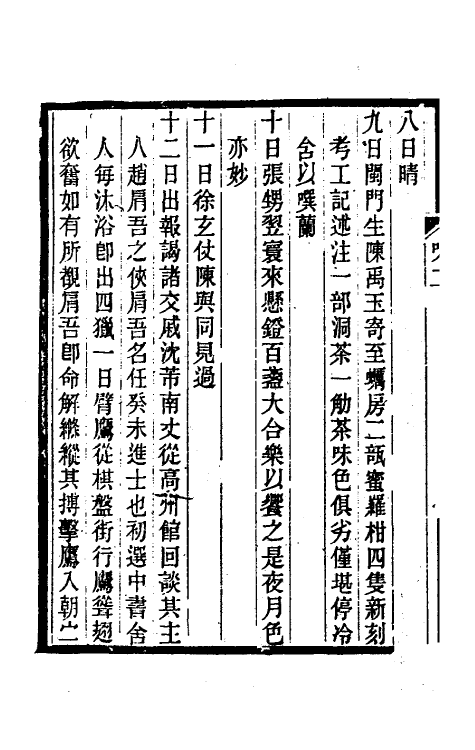 八日晴
九日閩門生陳禹玉寄至蠣房二瓿蜜羅柑四隻新刻
考工記述注一部洞茶一觔茶味色俱劣僅堪停冷
含以噀蘭
十日張甥翌寰來懸鐙百盞大合樂以饗之是夜月色
亦妙
十一日徐玄仗陳與同見過
十二日出報謁諸交戚沈芾南丈從高州館回談其主
人趙肩吾之俠肩吾名任癸未進士也初選中書舍
人每沐浴卽出四獵一日臂鷹從棋盤街行鷹聳翅
欲奮如有所覩肩吾卽命解縧縱其搏擊鷹入朝亡